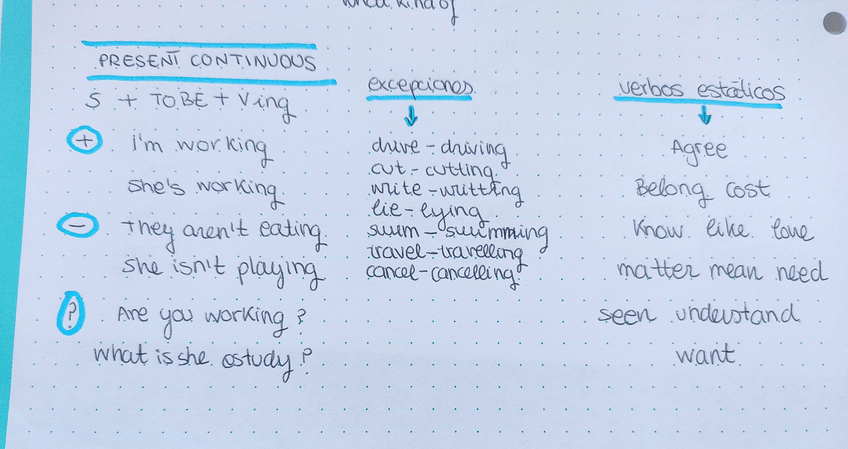 what kind of
PRESENT CONTINUOUS
S + TO BE + Ving
+ I'm working
she's working
- they aren't eating
she isn't playing
? Are you working?
what is she study?
excepciones
↓
drive - driving
cut - cutting
write - writting
lie - lying
swim - swimming
travel - travelling
cancel - cancelling
verbos estáticos
↓
Agree
Belong cost
Know like love
matter mean need
seen understand
want